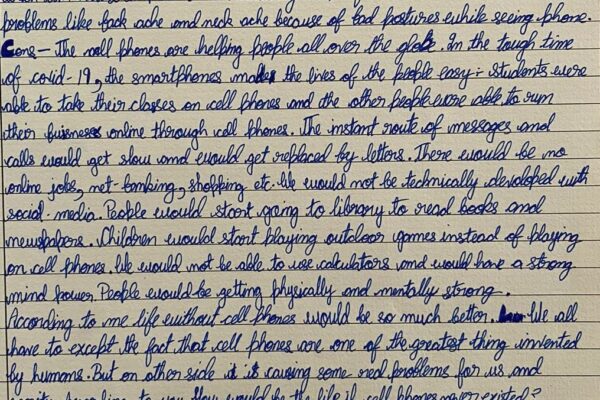 problems like back ache and neck ache because of bad postures while seeing phone.
Cons - The cell phones are helping people all over the globe. In the tough time
of covid-19, the smartphones makes the lives of the people easy:- students were
able to take their classes on cell phones and the other people were able to run
their buisness online through cell phones. The instant route of messages and
calls would get slow and would get replaced by letters. There would be no
online jobs, net-banking, shopping etc. We would not be technically developed with
social-media. People would start going to library to read books and
newspapers. Children would start playing outdoor games instead of playing
on cell phones. We would not be able to use calculators and would have a strong
mind power. People would be getting physically and mentally strong.
According to me life without cell phones would be so much better. We all
have to except the fact that cell phones are one of the greatest thing invented
by humans. But on other side it is causing some real problems for us and
According to you How would be the life if cell phones never existed?